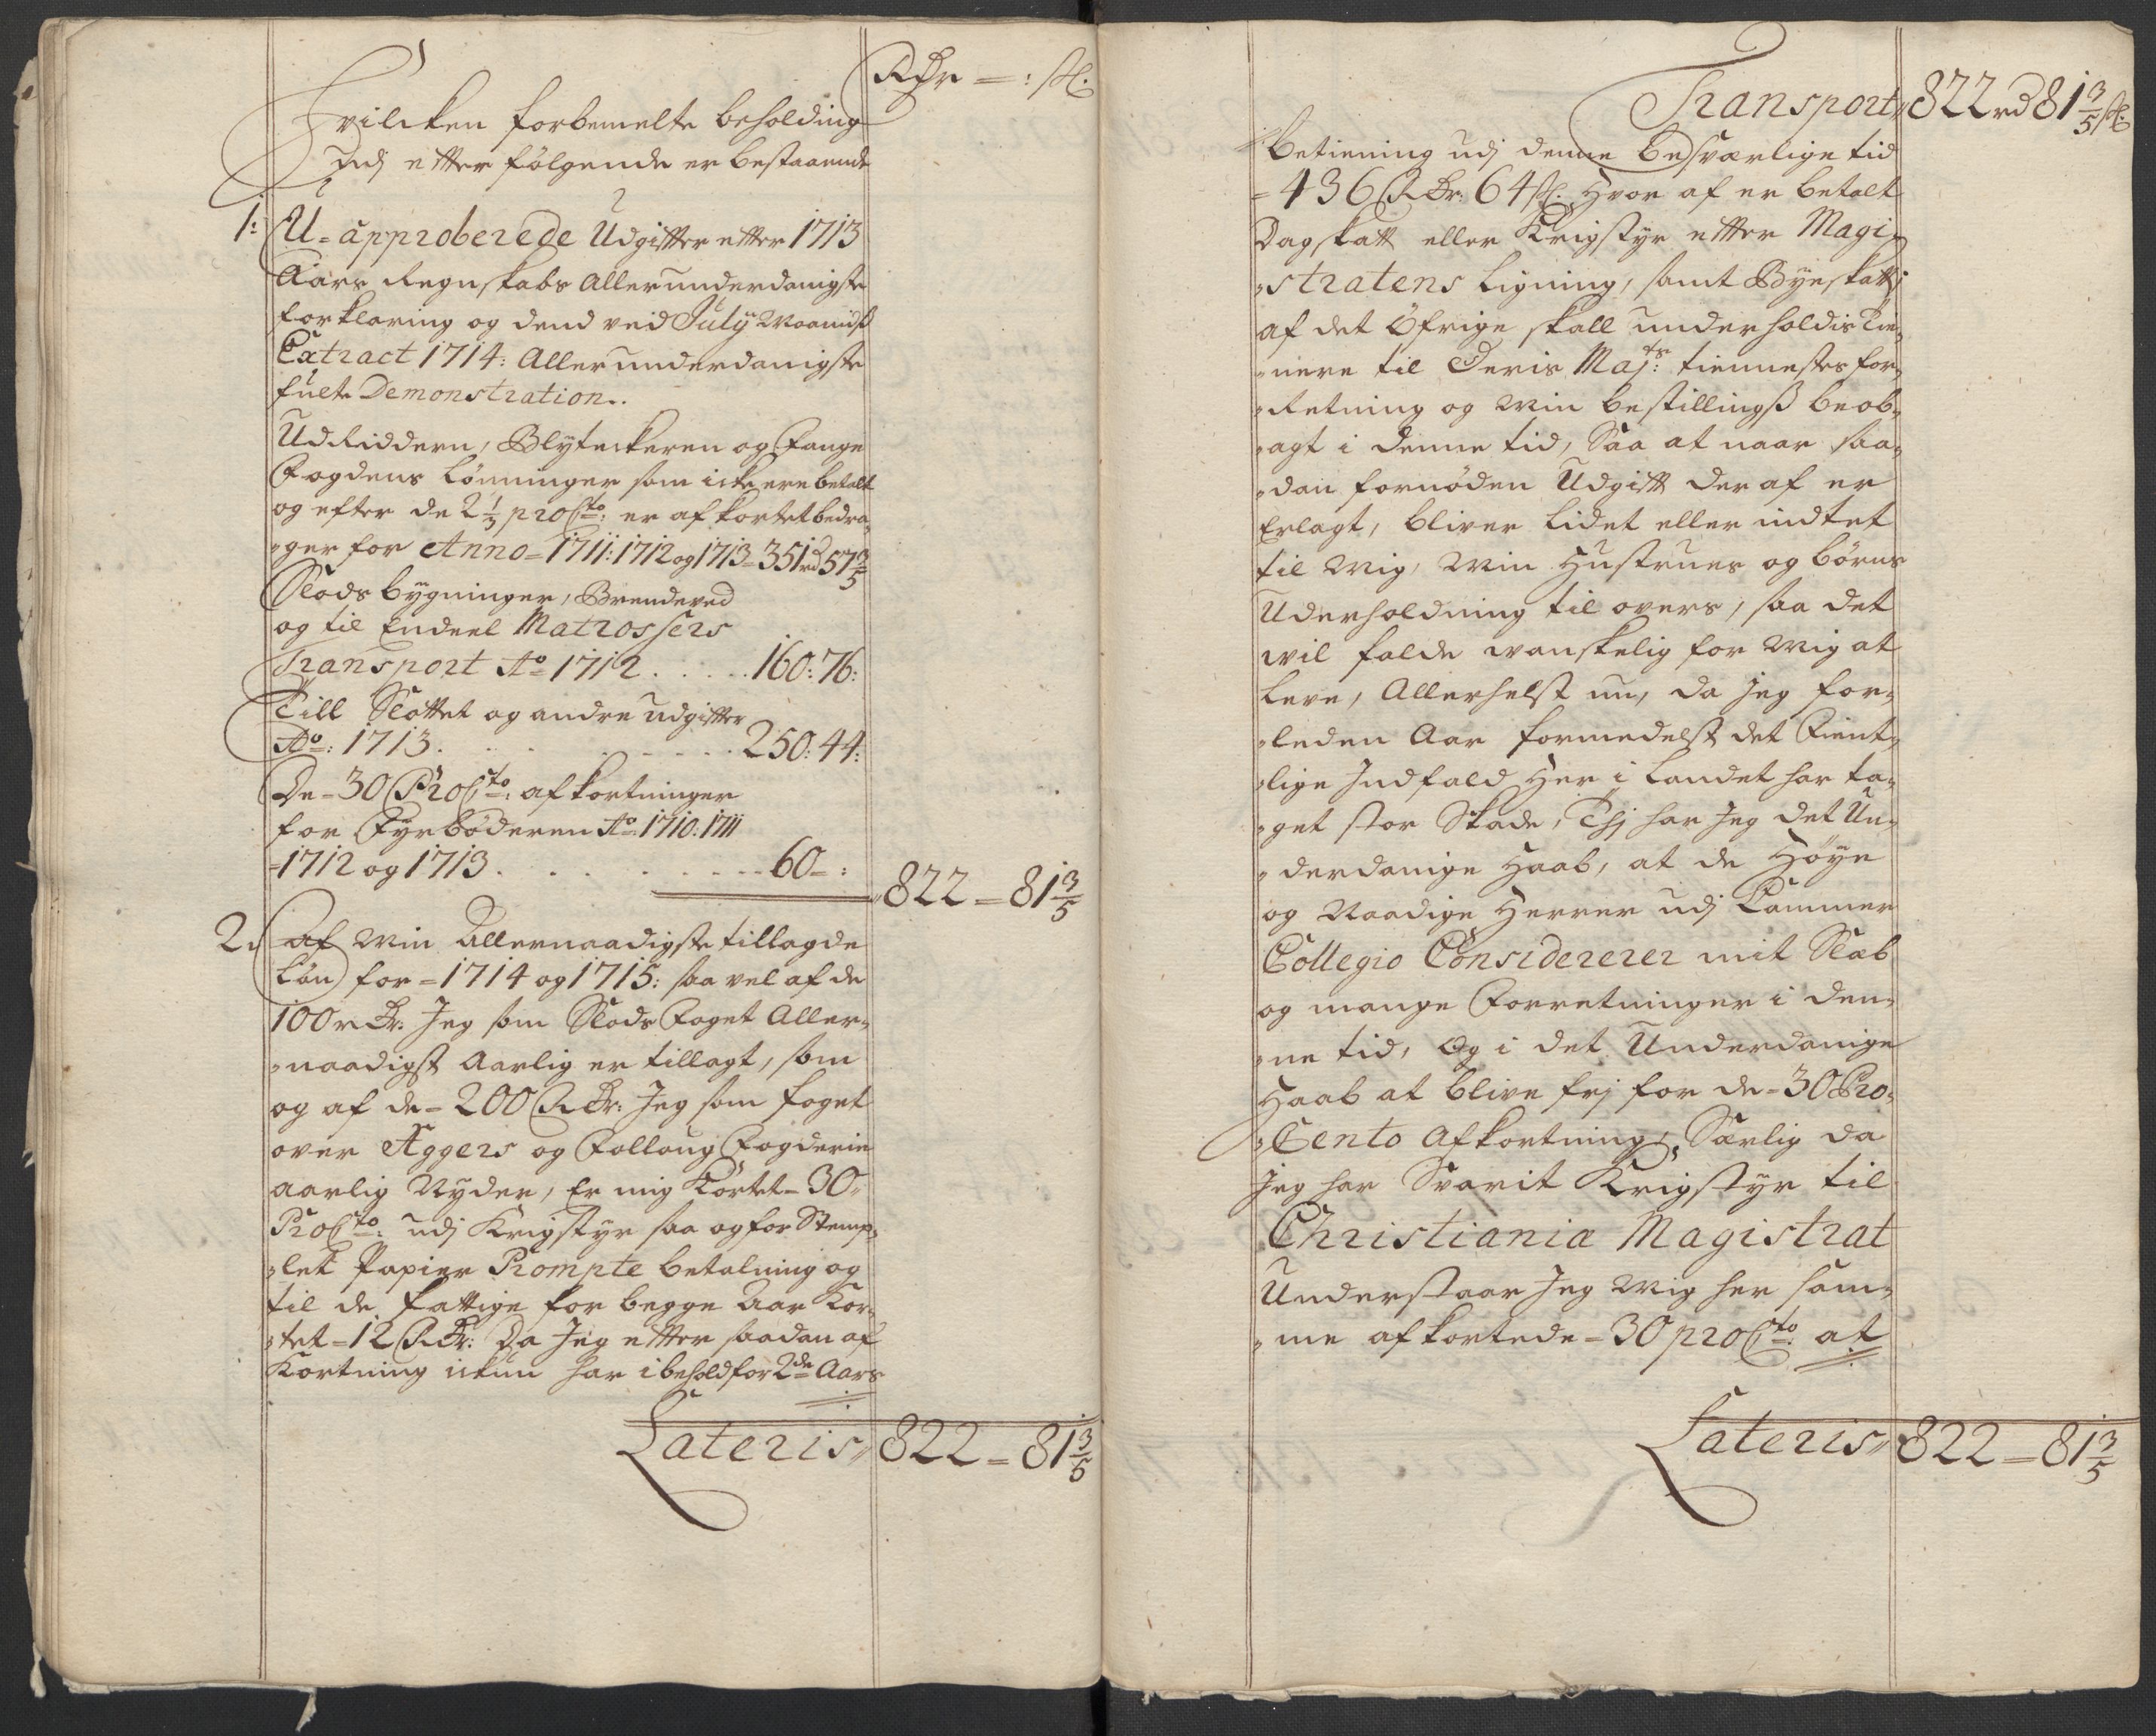 Rdr = : sk:
Hvilcken forbemelte beholding
Udj efterfølgende er bestaaende
1: U-approberede Udgifter efter 1713
Aars Regnskabs Allerunderdanigste
forklaring og dend ved Julÿ Maanidß
Extract 1714: Allerunderdanigste
fulte Demonstration.
Udridderen, Blyteckeren og Fange
Fogdens Lønninger som icke ere betalt
og efter de 2 1/3 pro Cto: er afkortet bedra-
-ger for Anno = 1711: 1712 og 1713 = 351 rd 57 3/5
Slodsbygninger, Brendeved
og til Endeel Matrossers
Transport Ao 1712 . . . . . 160: 76:
Till Slottet og andre udgifter
Ao: 1713. . . . . . . . . 250: 44:
De = 30 Pro Cto: afkortninger
for Fyrbøderen Ao 1710: 1711
= 1712 og 1713 . . . . . . . 60 = :
822 = 81 3/5
2. Af Min Allernaadigste tillagde
Løn for = 1714 og 1715: saa vel af de
100 rdr: Jeg som Slods Foget Aller-
-naadigst Aarlig er tillagt, som
og af de = 200 Rdr: Jeg som foget
over Aggers og Follaug Fogderie
aarlig Nyder, Er mig Kortet = 30
Pro Cto: udj Krigstyr saa og for Stemp-
-let Papier Prompte betalning og
til de fattige for begge Aar Kor-
-tet = 12 Rdr: Da Jeg efter saadan af
Kortning ickun har i behold for 2de Aars
Lateris 822 = 81 3/5
Transport 822 rd 81 3/5 sk:
betiening udj denne besværlige tid
= 436 Rdr: 64 sk: Hvor af er betalt
Dagskatt eller Krigstyr efter Magi-
-stratens Ligning, samt Byeskatt,
af det Øfrige skall underholdis Tie-
-nere til Deris Majts: tiennestes for-
-Retning og Min bestillingß beob-
-agt i denne tid, Saa at naar saa-
-dan fornøden Udgift deraf er
Erlagt, bliver Lidet eller indtet
til Mig, Min Hustrues og børns
Uderholdning til overs, saa det
vil falde vanskelig for Mig at
Leve, Allerhelst nu, da Jeg for-
-leden Aar formedelst det Fient-
-lige Indfald Her i Landet har ta-
-get stor Skade, Thj har Jeg det Un-
-derdanige Haab, at de Høye
og Naadige Herrer udj Cammer
Collegio Considererer mit Slæb
og mange Forretninger i den-
-ne tid, Og i det Underdanige
Haab at blive frj for de = 30 Pro-
-Cento Afkortning, Særlig da
Jeg har Svarit Krigstyr til
Christiania Magistrat
Understaar Jeg Mig her sam-
-me afkortede = 30 pro Cto: at
Lateris 822 = 81 3/5